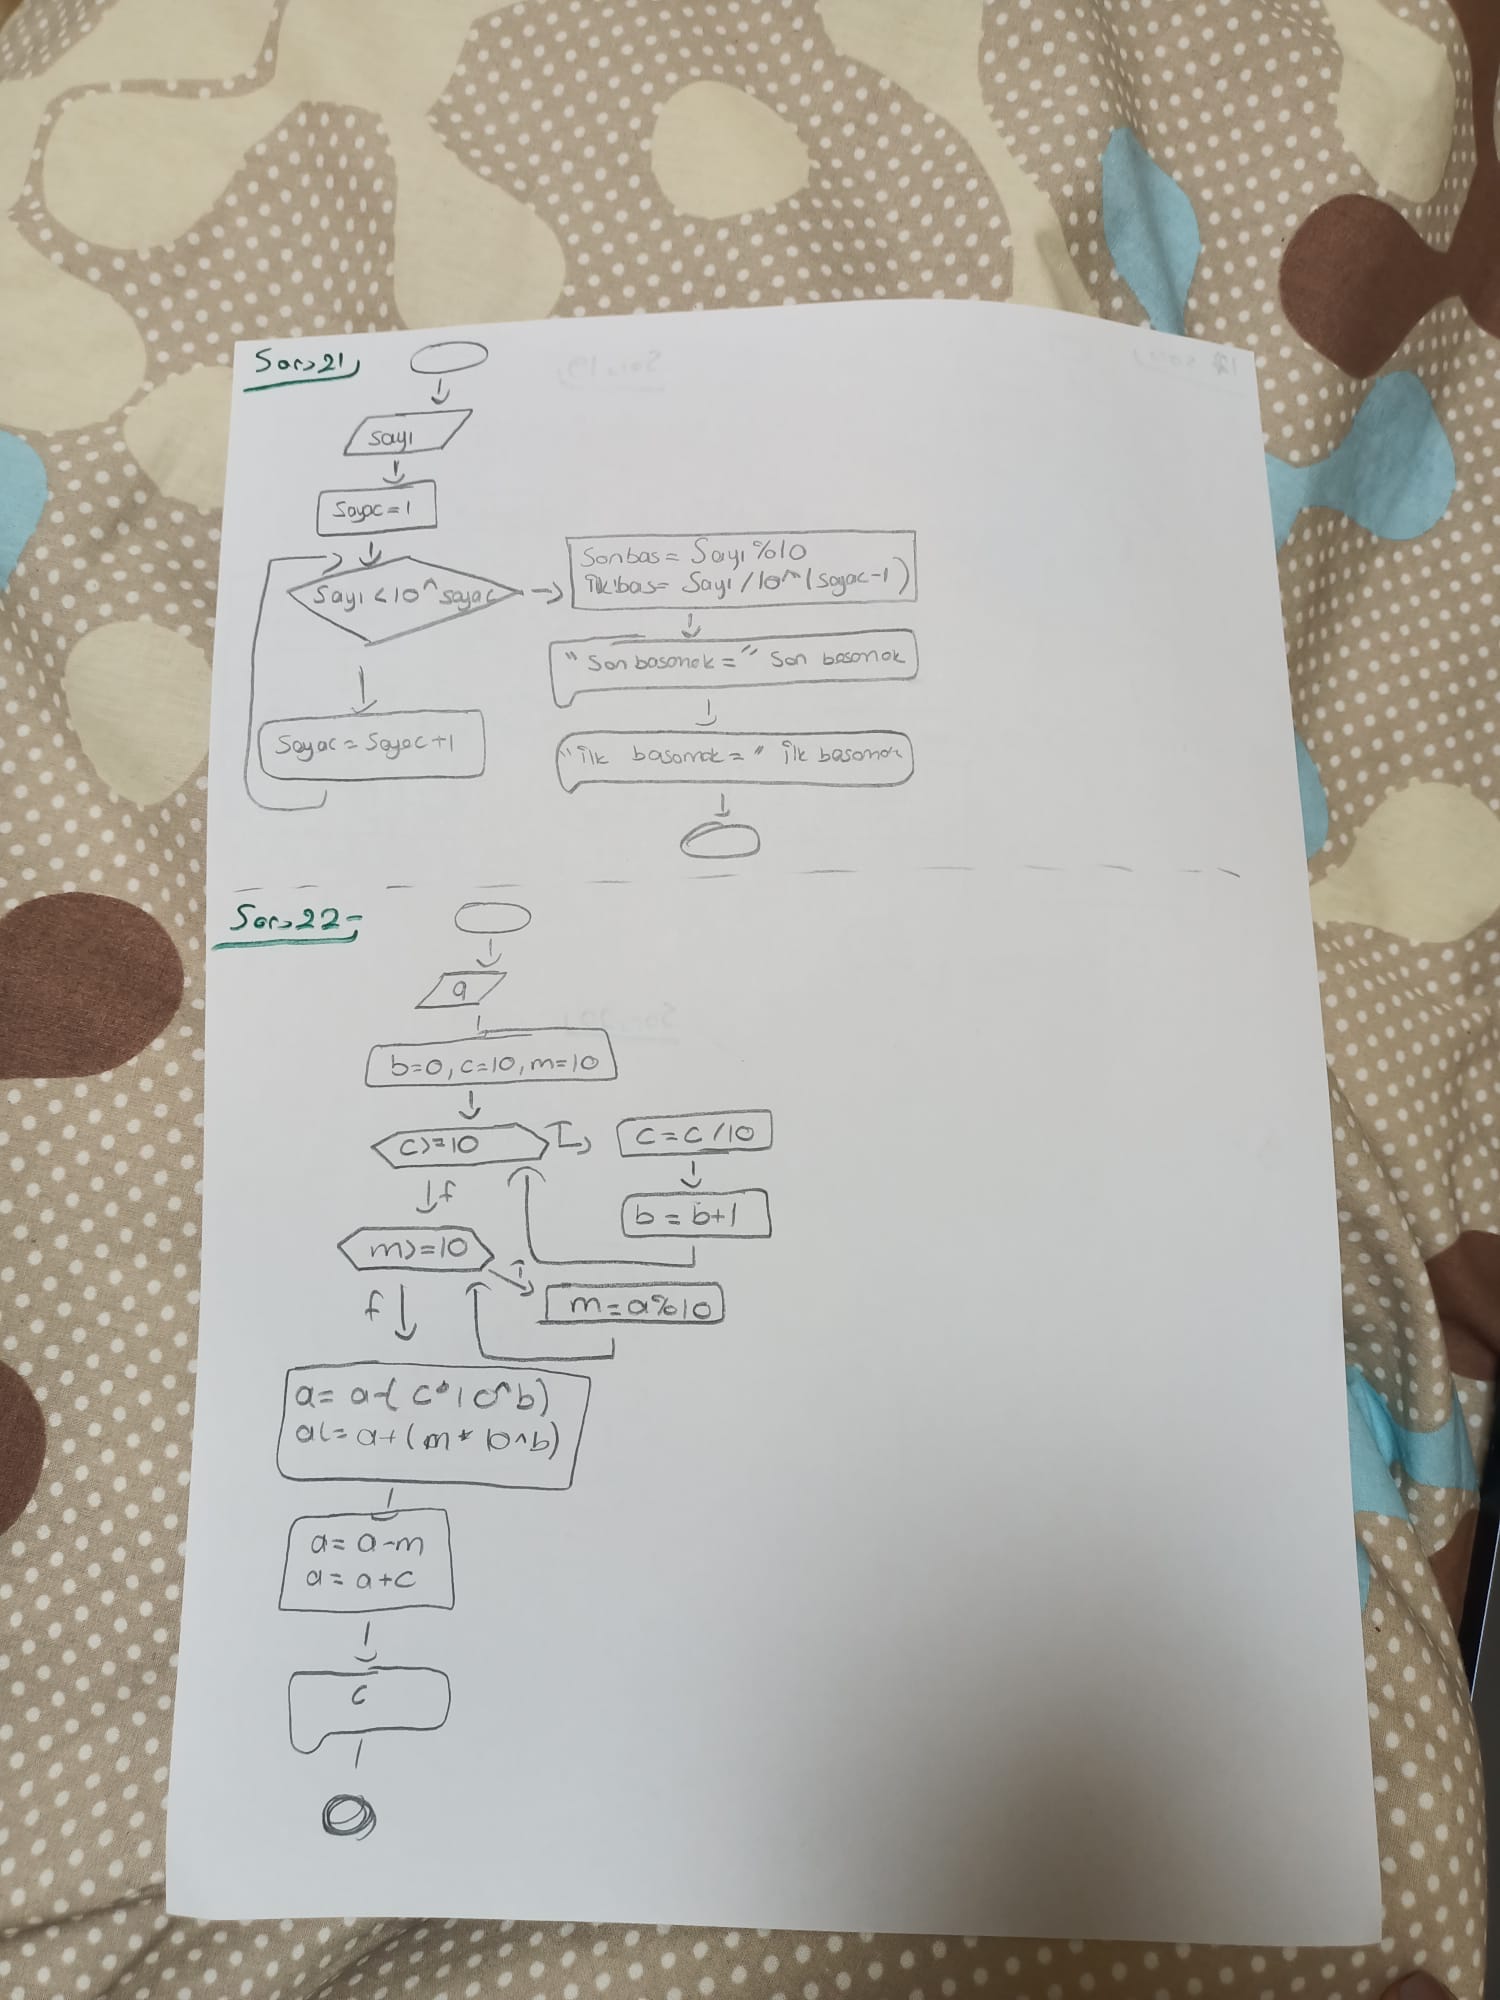 Soru21)
sayı
Sayac=1
Sayı<10^sayac
Sonbas= Sayı%10
İlkbas= Sayı/10^(sayac-1)
"Son basamak=" Son basamak
Sayac=Sayac+1
"ilk basamak=" ilk basamak
Soru22-
a
b=0,c=10,m=10
c>=10
c=c/10
f
b=b+1
m>=10
f
m=a%10
a=a-(c*10^b)
a=a+(m*10^b)
a=a-m
a=a+c
c